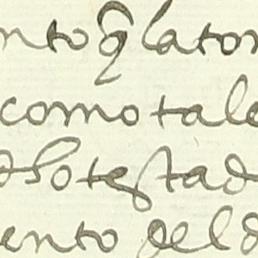 nto q̃ la tor
como tale
potestad
ento del d